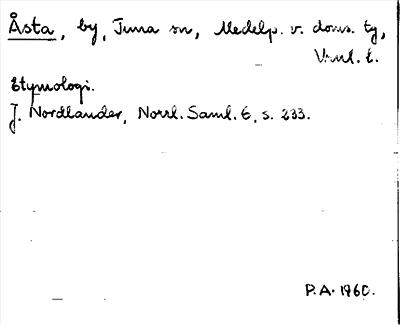 Åsta, by, Tuna sn, Medelp. v. doms. tg,
Vnul. l.
Etymologi.
J. Nordlander, Norrl. Saml. 6, s. 233.
P.A. 1960.